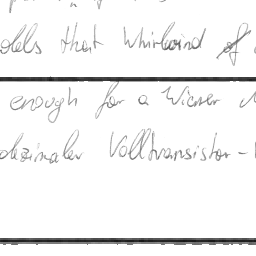 that Whirlwind of
enough for a Wiener
dezimaler Volltransistor-